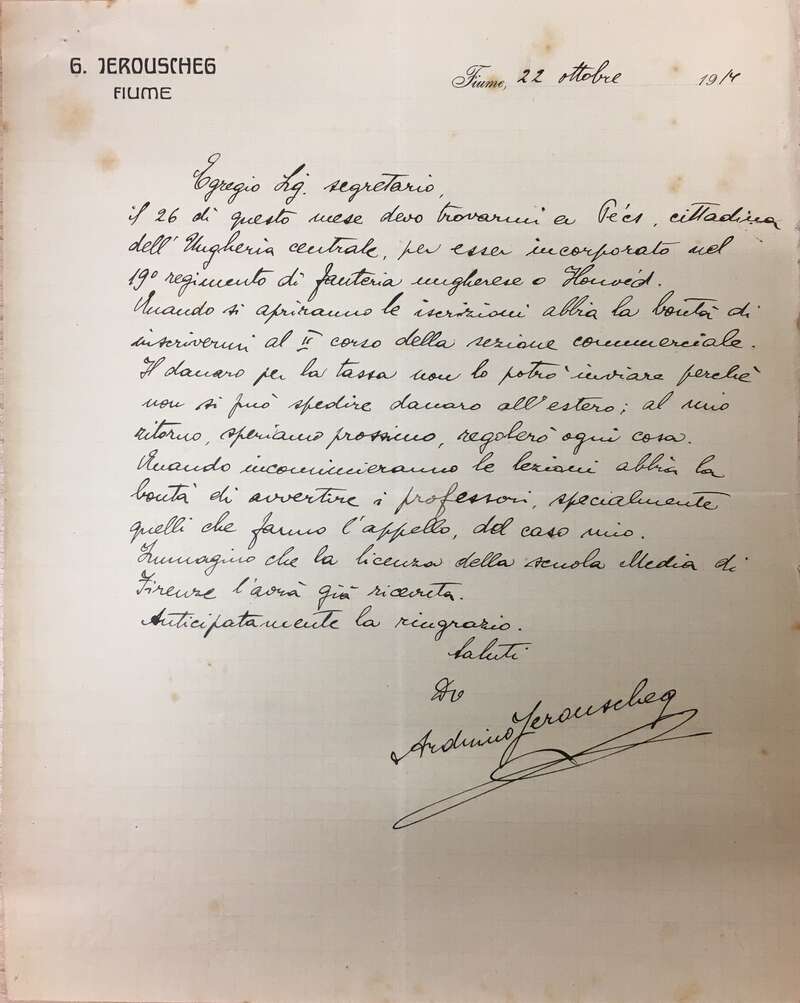 G. JEROUSCHEG
FIUME
Fiume, 22 ottobre 1914
Egregio Sig. segretario,
il 26 di questo mese devo trovarmi a Pécs, cittadina
dell'Ungheria centrale, per esser incorporato nel
19º regimento di fanteria ungherese o Honvéd.
Quando si apriranno le iscrizioni abbia la bontà di
inscrivermi al II corso della sezione commerciale.
Il danaro per la tassa non lo potrò inviare perchè
non si può spedire danaro all'estero; al mio
ritorno, speriamo prossimo, regolerò ogni cosa.
Quando incomincieranno le lezioni abbia la
bontà di avvertire i professori, specialmente
quelli che fanno l'appello, del caso mio.
Immagino che la licenza della scuola Media di
Firenze l'avrà già ricevuta.
Anticipatamente la ringrazio.
Saluti
Dv
Arduino Jerouscheg